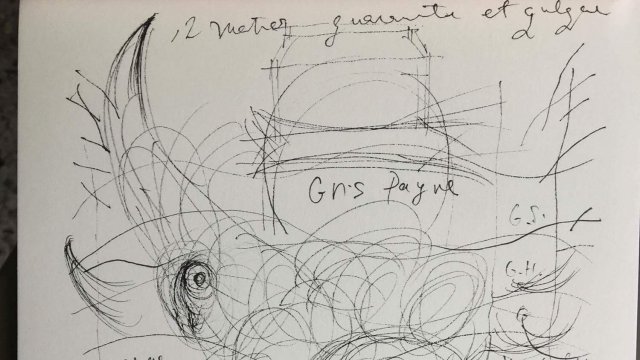 ,2 metres quarante et quelque
Gris Payne
G.S.
G.H.
G